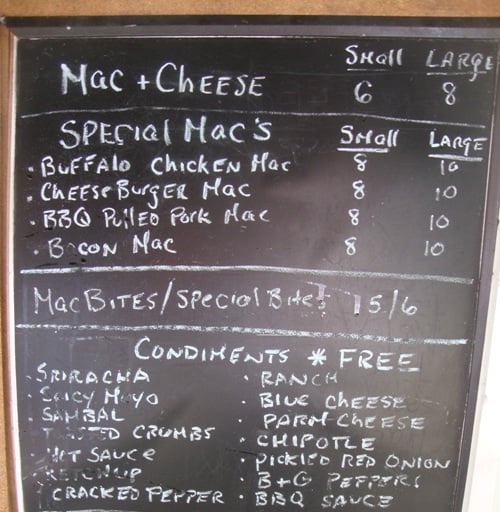 Small LARGE
Mac + CHEESE 6 8
SPECIAL MAC'S Small LARGE
• BUFFALO CHICKEN Mac 8 10
• CHEESEBURGER Mac 8 10
• BBQ Pulled Pork Mac 8 10
• Bacon Mac 8 10
Mac BITES/Special Bites 5/6
CONDIMENTS * FREE
• SRIRACHA • RANCH
• Spicy Mayo • BLUE CHEESE
• SAMBAL • PARM CHEESE
• TOASTED CRUMBS • CHIPOTLE
• HOT SAUCE • PICKLED RED ONION
• KETCHUP • B+G PEPPERS
• CRACKED PEPPER • BBQ SAUCE